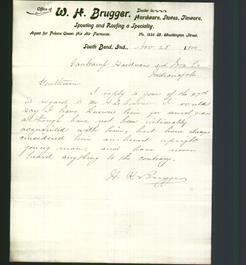 Office of W. H. Brugger,
Dealer in Hardware, Stoves, Tinware,
Spouting and Roofing a Specialty.
Agent for Palace Queen Hot Air Furnace.
No. 1225 W. Washington Street.
South Bend, Ind., Nov 28
VanCamp Hardware and Iron Co
Indianapolis
Gentlemen
I reply to yours of the 27th
in regard to Mr H I would
say we have known him for
although have not been intimately
acquainted with him, but have always
considered him an honest upright
young man, and have never
heard anything to the contrary.
W. H. Brugger